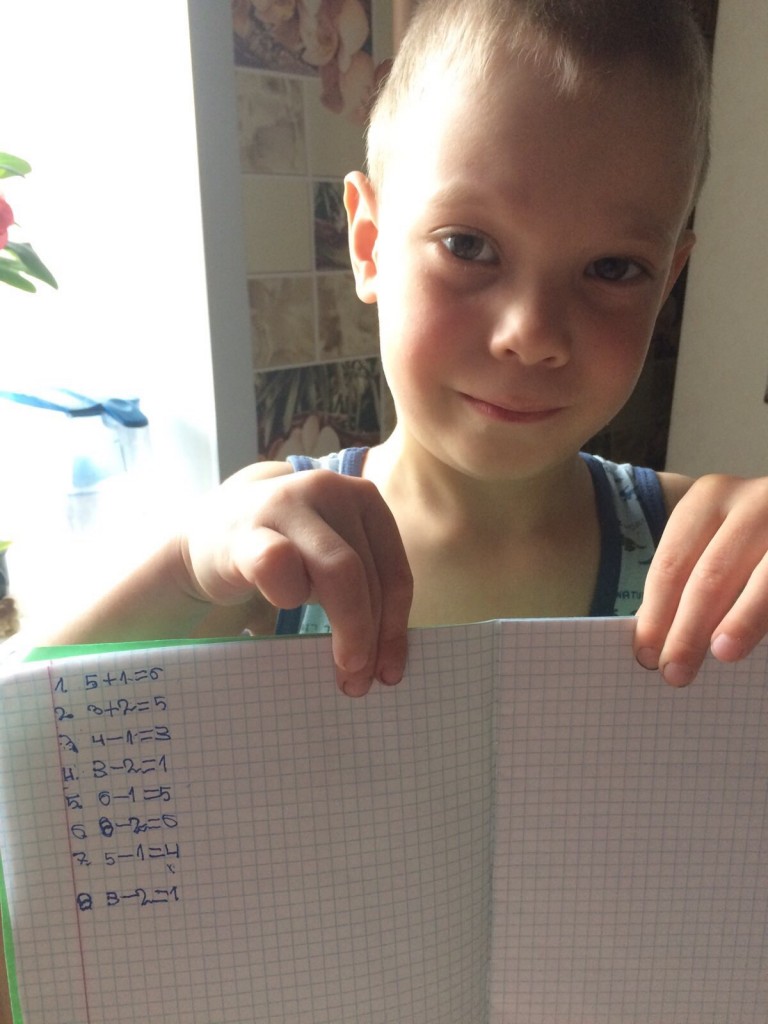 1. 5+1=6
2. 3+2=5
3. 4-1=3
4. 3-2=1
5. 6-1=5
6. 8-2=6
7. 5-1=4
8 3-2=1